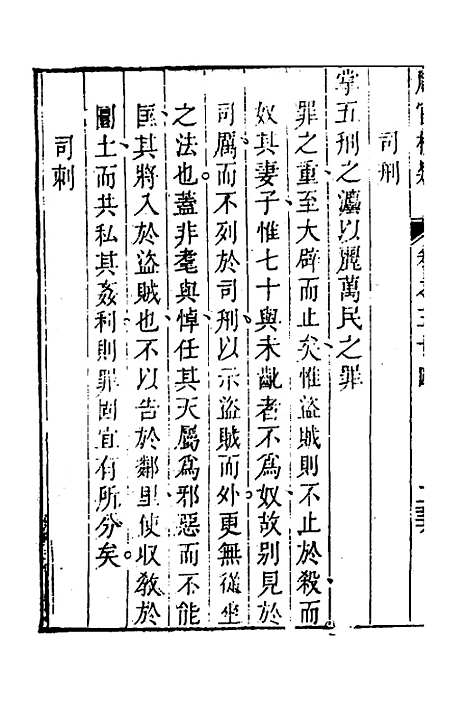 司刑
掌五刑之灋以麗萬民之罪
罪之重至大辟而止矣惟盜賊則不止於殺而
奴其妻子惟七十與未齔者不爲奴故別見於
司厲而不列於司刑以示盜賊而外更無從坐
之法也蓋非耄與悼任其天屬爲邪惡而不能
匡其將入於盜賊也不以告於鄰里使収敎於
圜土而共私其姦利則罪固宜有所分矣
司刺